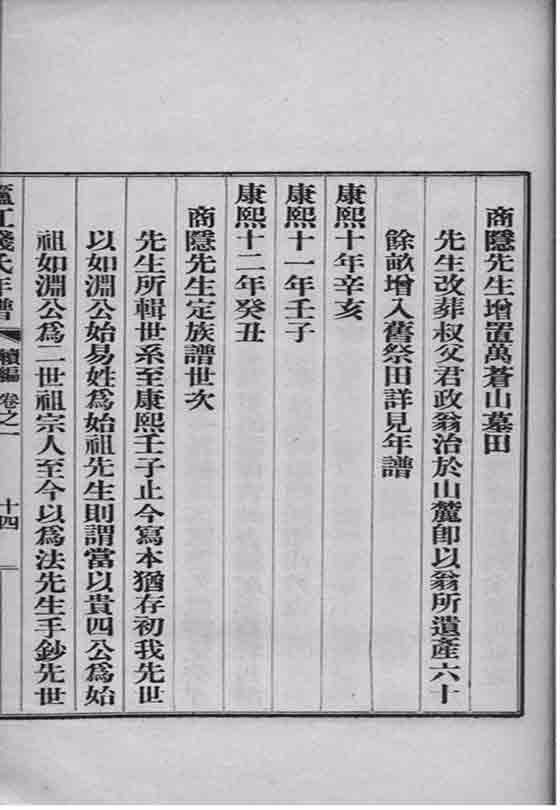 商隱先生增置萬蒼山墓田
先生改葬叔父君政翁治於山麓卽以翁所遺產六十
餘畝增入舊祭田詳見年譜
康熙十年辛亥
康熙十一年壬子
康熙十二年癸丑
商隱先生定族譜世次
先生所輯世系至康熙壬子止今寫本猶存初我先世
以如淵公始易姓爲始祖先生則謂當以貴四公爲始
祖如淵公爲二世祖宗人至今以爲法先生手鈔先世
廬江錢氏年譜 續編 卷之一 十四